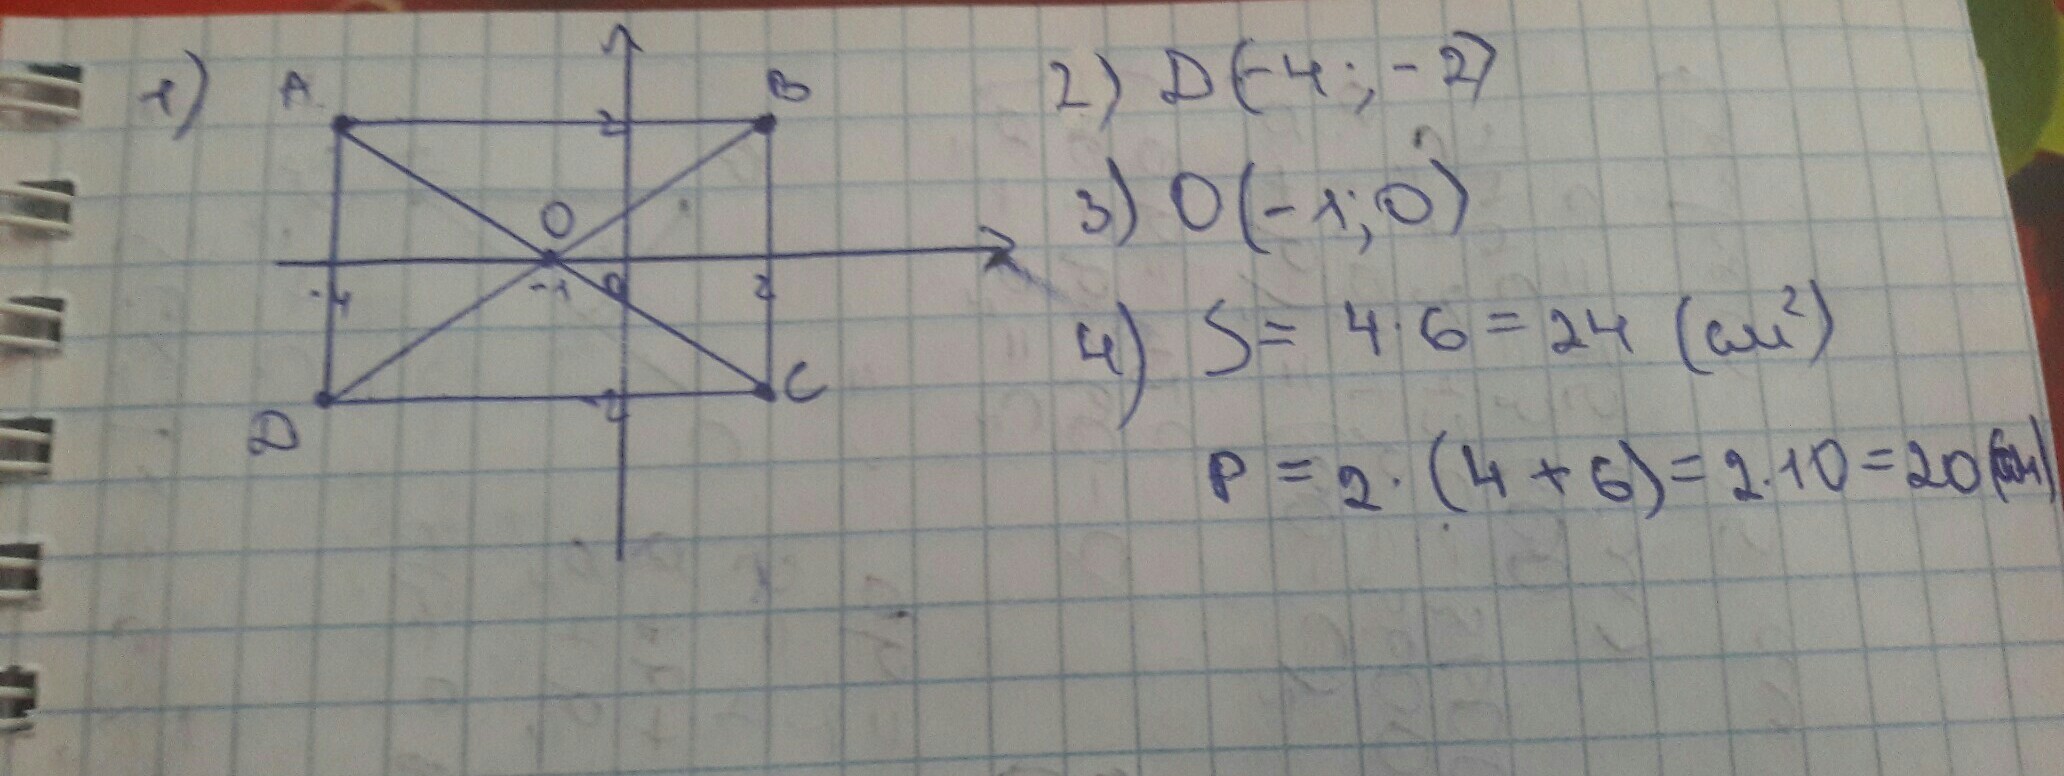 1)
A
B
2
O
-4
-1
0
2
D
-2
C
2) D(-4; -2)
3) O(-1; 0)
4) S = 4 · 6 = 24 (см²)
P = 2 · (4 + 6) = 2 · 10 = 20 (см)